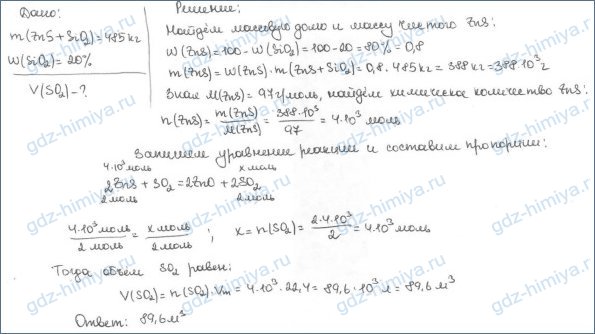 Дано:
m(ZnS + SiO₂) = 485 кг
W(SiO₂) = 20%
V(SO₂) - ?
Решение:
Найдём массовую долю и массу чистого ZnS:
W(ZnS) = 100 - W(SiO₂) = 100 - 20 = 80% = 0,8
m(ZnS) = W(ZnS) · m(ZnS + SiO₂) = 0,8 · 485 кг = 388 кг = 388·10³ г
Зная M(ZnS) = 97 г/моль, найдём химическое количество ZnS:
n(ZnS) = m(ZnS)/M(ZnS) = 388·10³/97 = 4·10³ моль
Запишем уравнение реакции и составим пропорции:
4·10³ моль x моль
2ZnS + 3O₂ = 2ZnO + 2SO₂
2 моль 2 моль
4·10³ моль/2 моль = x моль/2 моль ; x = n(SO₂) = 2·4·10³/2 = 4·10³ моль
Тогда объём SO₂ равен:
V(SO₂) = n(SO₂) · Vm = 4·10³ · 22,4 = 89,6 · 10³ л = 89,6 м³
Ответ: 89,6 м³
gdz-himiya.ru